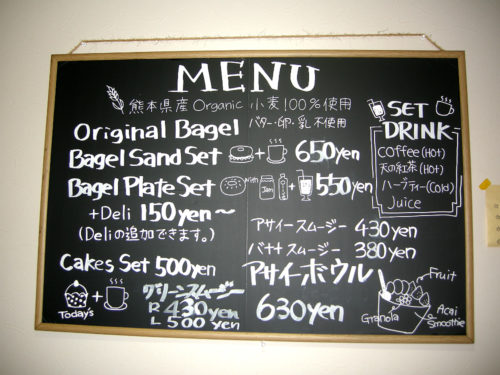 MENU
熊本県産 Organic 小麦100%使用
Original Bagel バター・卵・乳 不使用
Bagel Sand Set + 650yen
Bagel Plate Set with Jam + 550yen
+Deli 150yen〜
(Deliの追加できます。)
Cakes Set 500yen
Today's +
グリーンスムージー
R 430yen
L 500yen
SET
DRINK
COffee(HOt)
天の紅茶(HOt)
ハーブティー(Cold)
Juice
アサイースムージー 430yen
バナナスムージー 380yen
アサイボウル
630yen
Fruit
Granola
Acai
Smoothie